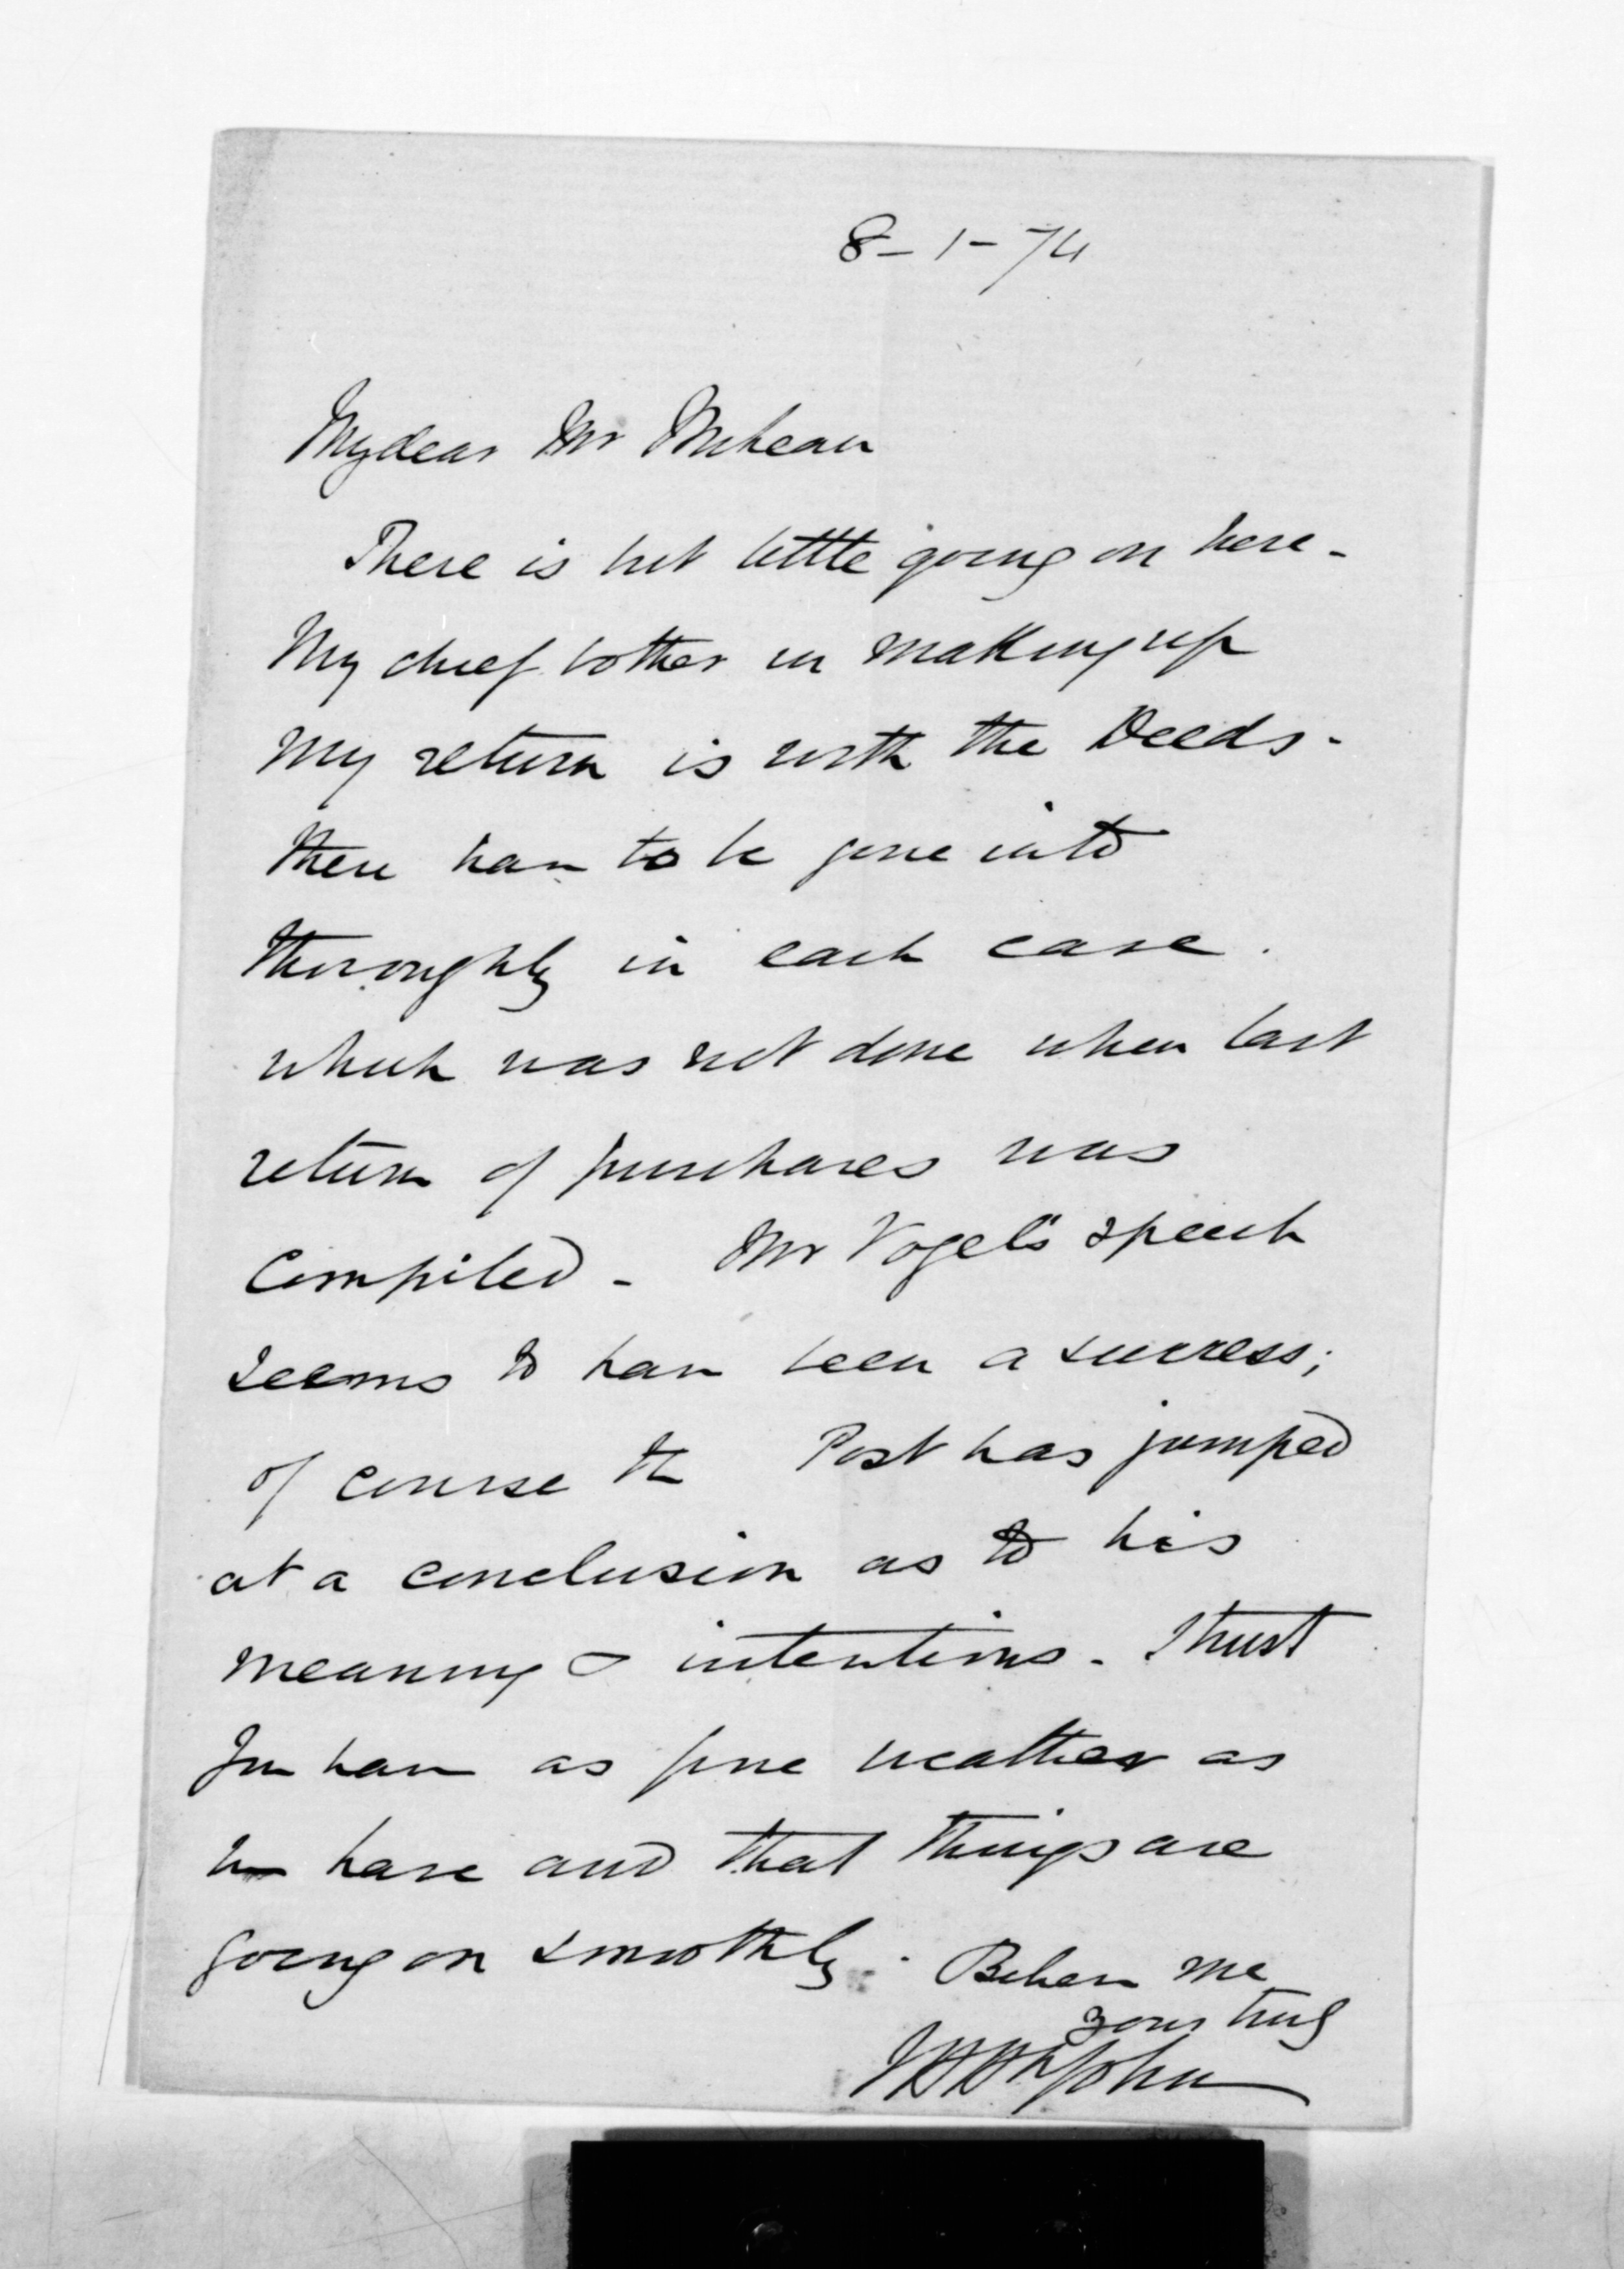 8-1-74
My dear Mr McLean
There is but little going on here-
My chief bother in making up
my return is with the Deeds-
these have to be gone into
thoroughly in each case.
which was not done when last
return of purchases was
Compiled - Mr Vogel's speech
seems to have been a success;
of course the Post has jumped
at a conclusion as to his
meaning & intentions - I trust
you have as fine weather as
we have and that things are
going on smoothly. Believe me
yours truly
JHH St John